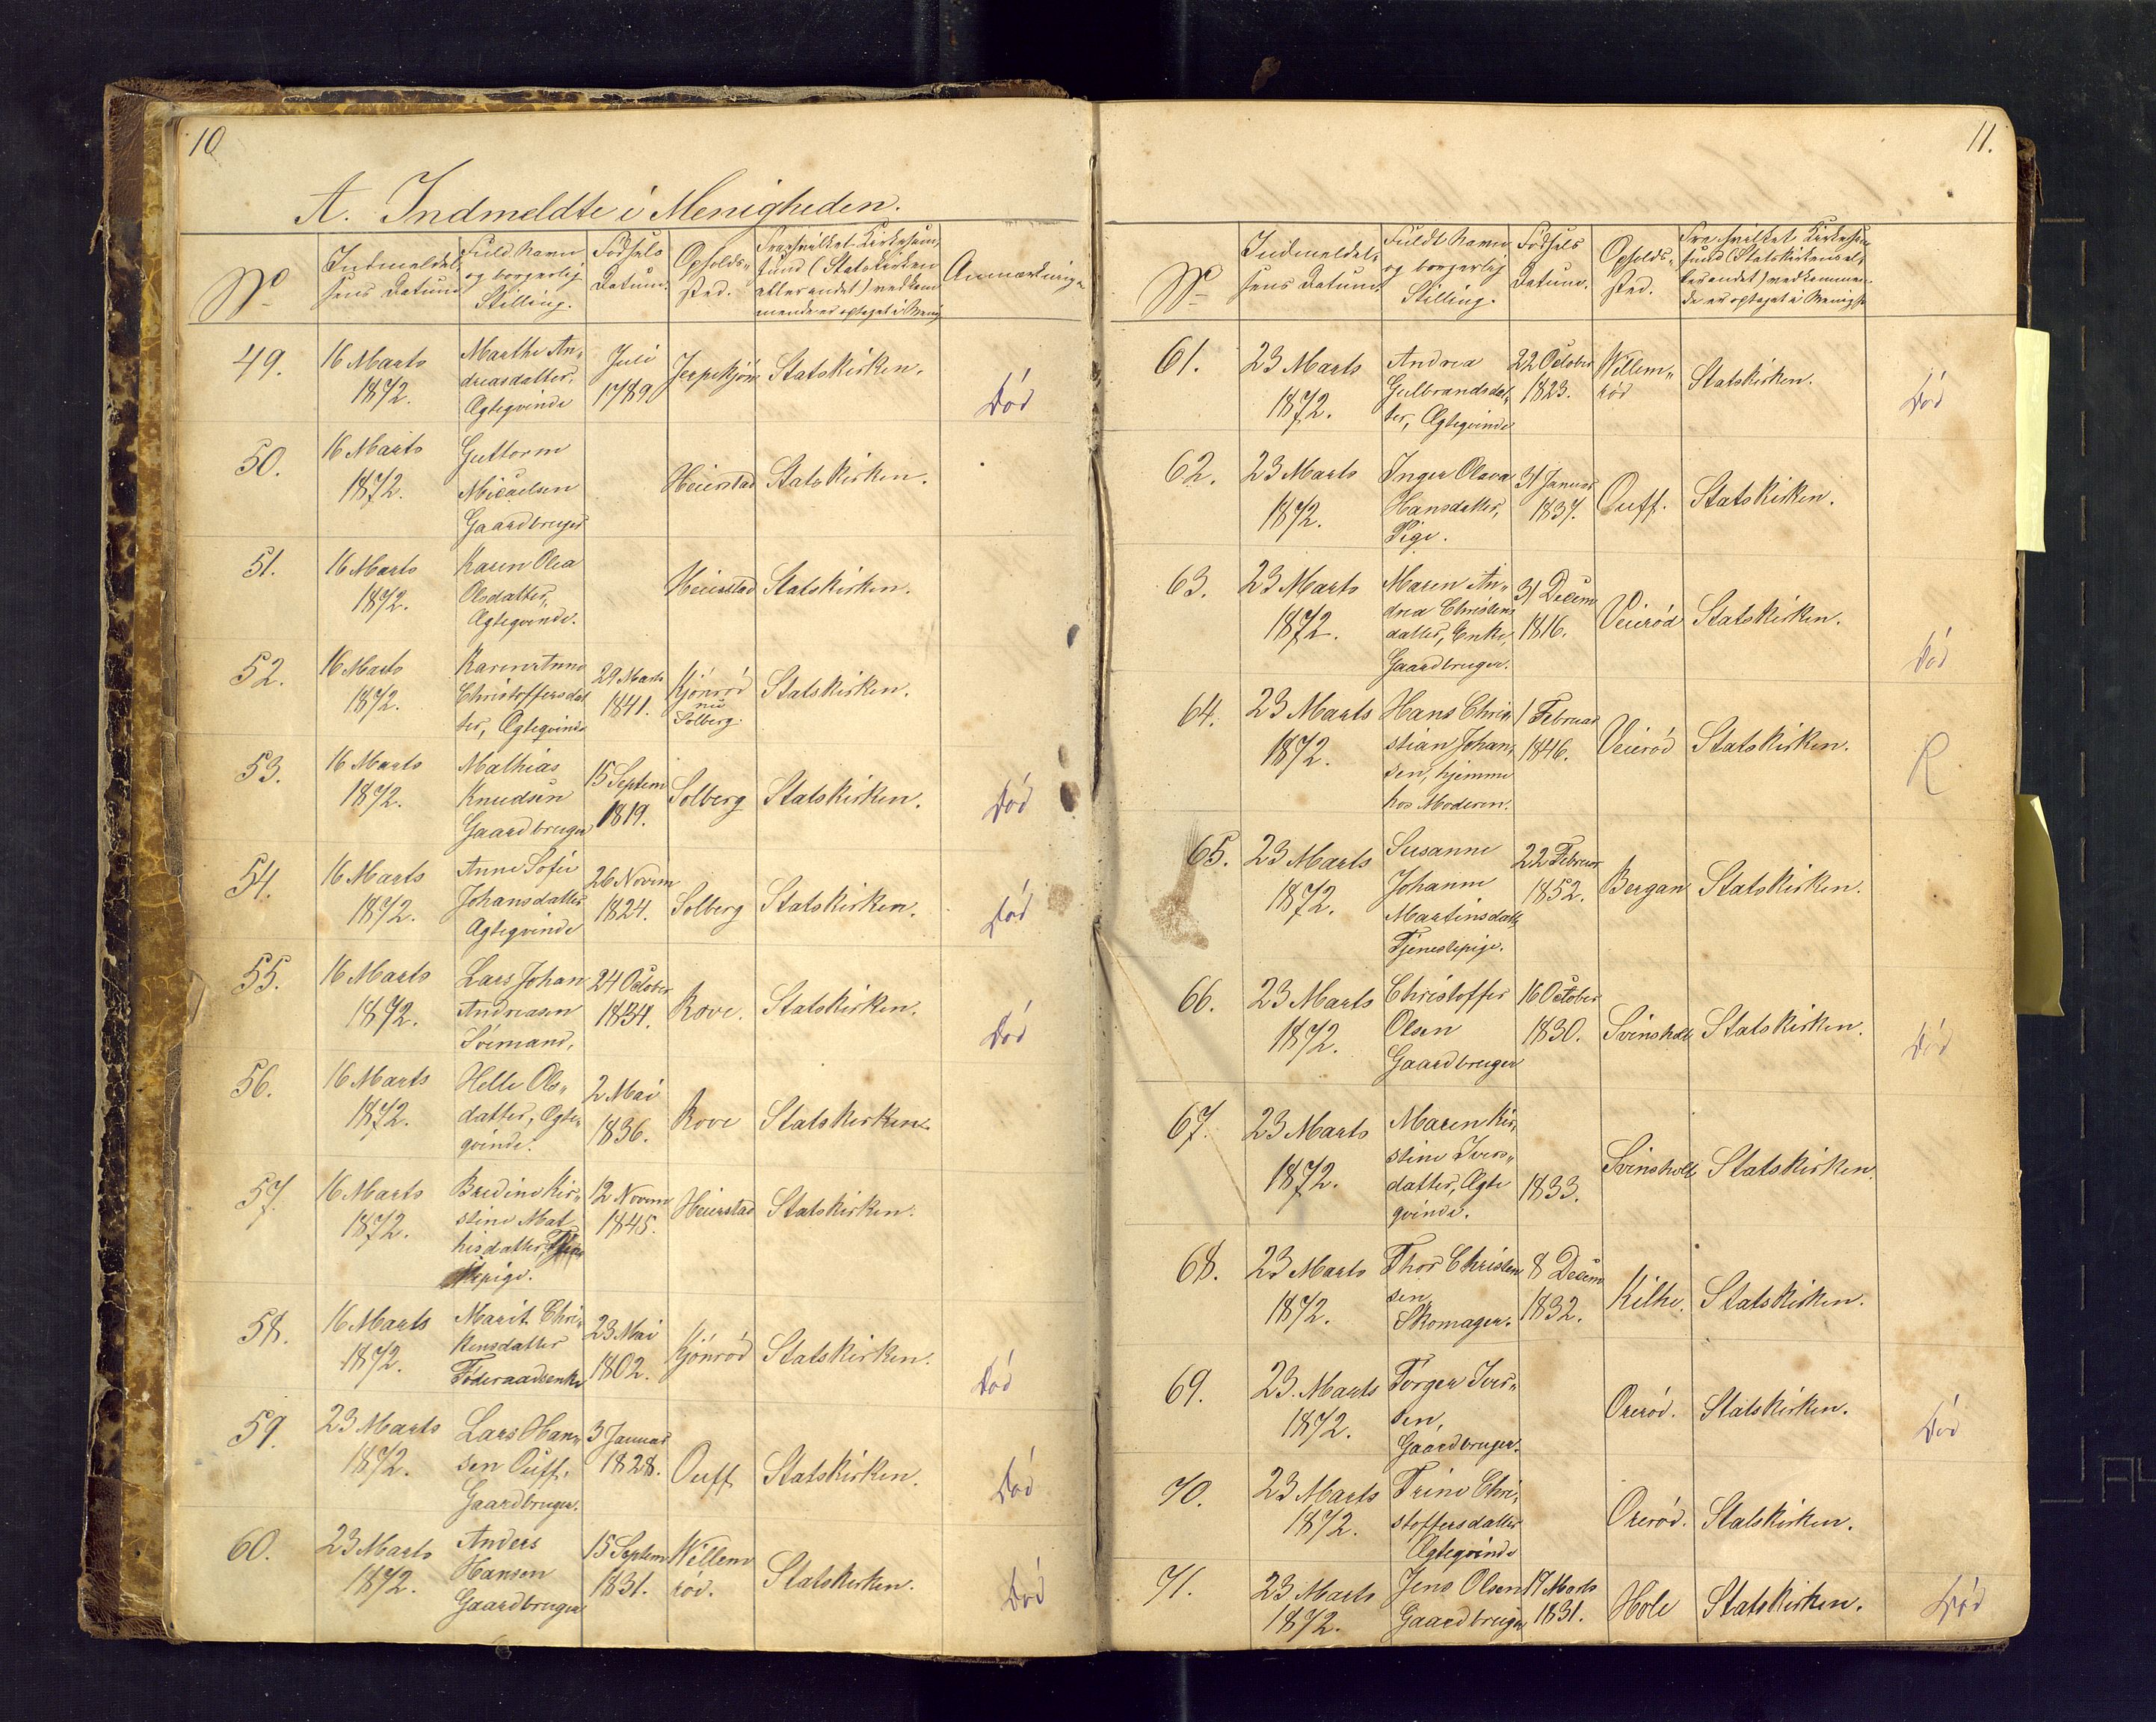 10
A. Indmeldte i Menigheden.
No
Indmeldel-
sens Datum
Fuld Navn
og borgerlig
Stilling.
Fødsels
Datum.
Opholds-
sted.
Fra hvilket Kirkesam-
fund (Statskirken
eller andet) vedkom
mende er optaget i Menig
Anmærkning
49.
16 Marts
1872.
Marthe An-
dreasdatter,
Ægteqvinde
Juli
1789.
Jerpekjøn
Statskirken.
Død
50.
16 Marts
1872.
Guttorm
Micaelsen
Gaardbruger
Heierstad
Statskirken.
51.
16 Marts
1872.
Karen Olea
Olsdatter,
Ægteqvinde.
Heierstad
Statskirken.
52.
16 Marts
1872.
Karen Anne
Christoffersdat
ter, Ægteqvinde
29 Marts
1841.
Kjønrød
nu
Solberg.
Statskirken.
53.
16 Marts
1872.
Mathias
Knudsen
Gaardbruger
15 Septem
1819.
Solberg
Statskirken.
Død
54.
16 Marts
1872.
Anne Sofie
Johansdatter
Ægteqvinde
26 Novem
1824.
Solberg
Statskirken.
Død
55.
16 Marts
1872.
Lars Johan
Andreasen
Sømand,
24 October
1834.
Rove.
Statskirken.
Død
56.
16 Marts
1872.
Helle Ols-
datter, Ægte-
qvinde.
2 Mai
1836.
Rove
Statskirken.
57.
16 Marts
1872.
Bredine Kir-
stine Mat
hisdatter,
pige.
12 Novem
1845.
Heierstad
Statskirken.
58.
16 Marts
1872.
Marit Chri-
stensdatter
Føderaadsenke
23 Mai
1802.
Kjønrød
Statskirken.
Død
59.
23 Marts
1872.
Lars Han-
sen Ouff,
Gaardbruger.
3 Januar
1828.
Ouff
Statskirken.
Død
60.
23 Marts
1872.
Anders
Hansen
Gaardbruger
15 Septem
1831.
Willem
rød.
Statskirken.
Død
11.
No
Indmeldel-
sens Datum.
Fuldt Navn
og borgerlig
Stilling.
Fødsels
Datum.
Opholds-
sted.
Fra hvilket Kirkesam-
fund (Statskirken el-
ler andet) vedkommen-
de er optaget i Menigh
61.
23 Marts
1872.
Andrea
Gulbrandsdat-
ter, Ægteqvinde
22 October
1823.
Willem-
rød
Statskirken.
Død
62.
23 Marts
1872.
Inger Olava
Hansdatter,
Pige.
31 Januar
1837.
Ouff.
Statskirken.
63.
23 Marts
1872.
Maren An-
drea Christens
datter, Enke,
Gaardbruger.
31 Decem
1816.
Veierød
Statskirken.
Død
64.
23 Marts
1872.
Hans Chri-
stian Johan-
sen, hjemme
hos Moderen.
1 Februar
1846.
Veierød
Statskirken.
R
65.
23 Marts
1872.
Susanne
Johanne
Martinsdatt,
Tjenestepige.
22 Februar
1852.
Bergan
Statskirken.
66.
23 Marts
1872.
Christoffer
Olsen
Gaardbruger
16 October
1830.
Svinsholt
Statskirken.
Død
67.
23 Marts
1872.
Maren Kir-
stine Ivers-
datter, Ægte
qvinde.
1833.
Svinsholt
Statskirken.
68.
23 Marts
1872.
Thor Christen
sen,
Skomager.
8 Decem
1832.
Kilhe.
Statskirken.
69.
23. Marts
1872.
Torger Iver-
sen,
Gaardbruger.
Orerød.
Statskirken.
Død
70.
23 Marts
1872.
Trine Chri-
stoffersdatter
Ægteqvinde
Orerød.
Statskirken.
71.
23 Marts
1872.
Jens Olsen
Gaardbruger
17 Marts
1831.
Hole
Statskirken.
Død